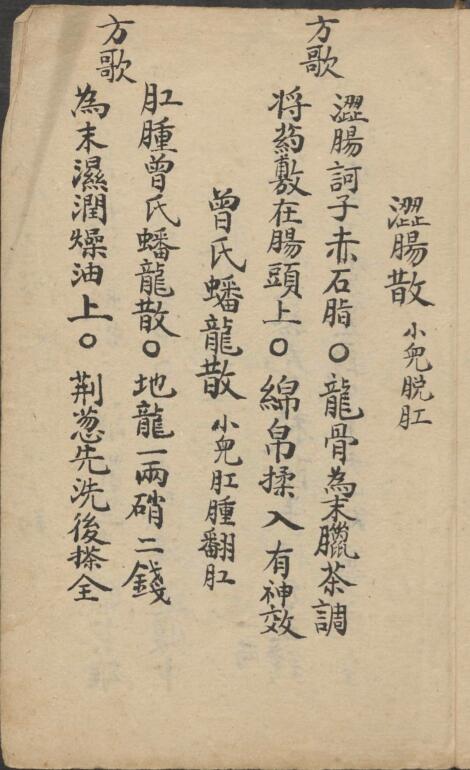 澀腸散 小兒脫肛
方歌
澀腸訶子赤石脂○龍骨為末臘茶調
將葯敷在腸頭上○綿帛揉入有神效
曾氏蟠龍散 小兒肛腫翻肛
方歌
肛腫曾氏蟠龍散○地龍一兩硝二錢
為末濕潤燥油上○荆葱先洗後搽全